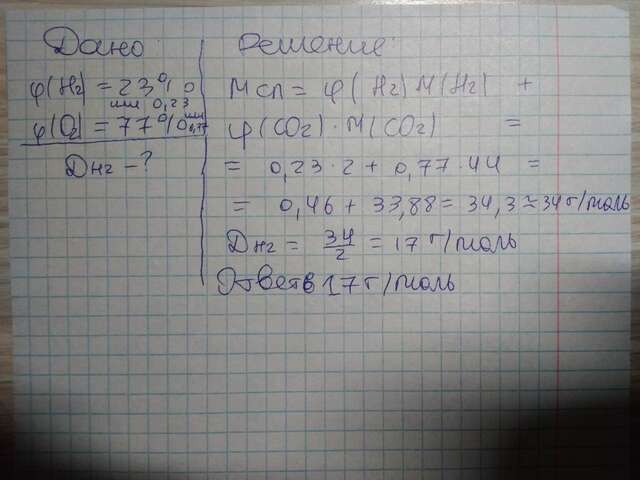 Дано:
φ(H2) = 23%
или 0,23
φ(O2) = 77% или 0,77
DH2 – ?
Решение:
Mсп = φ(H2) M(H2) +
φ(CO2) · M(CO2) =
= 0,23 · 2 + 0,77 · 44 =
= 0,46 + 33,88 = 34,3 ≈ 34 г/моль
DH2 = 34/2 = 17 г/моль
Ответ: 17 г/моль